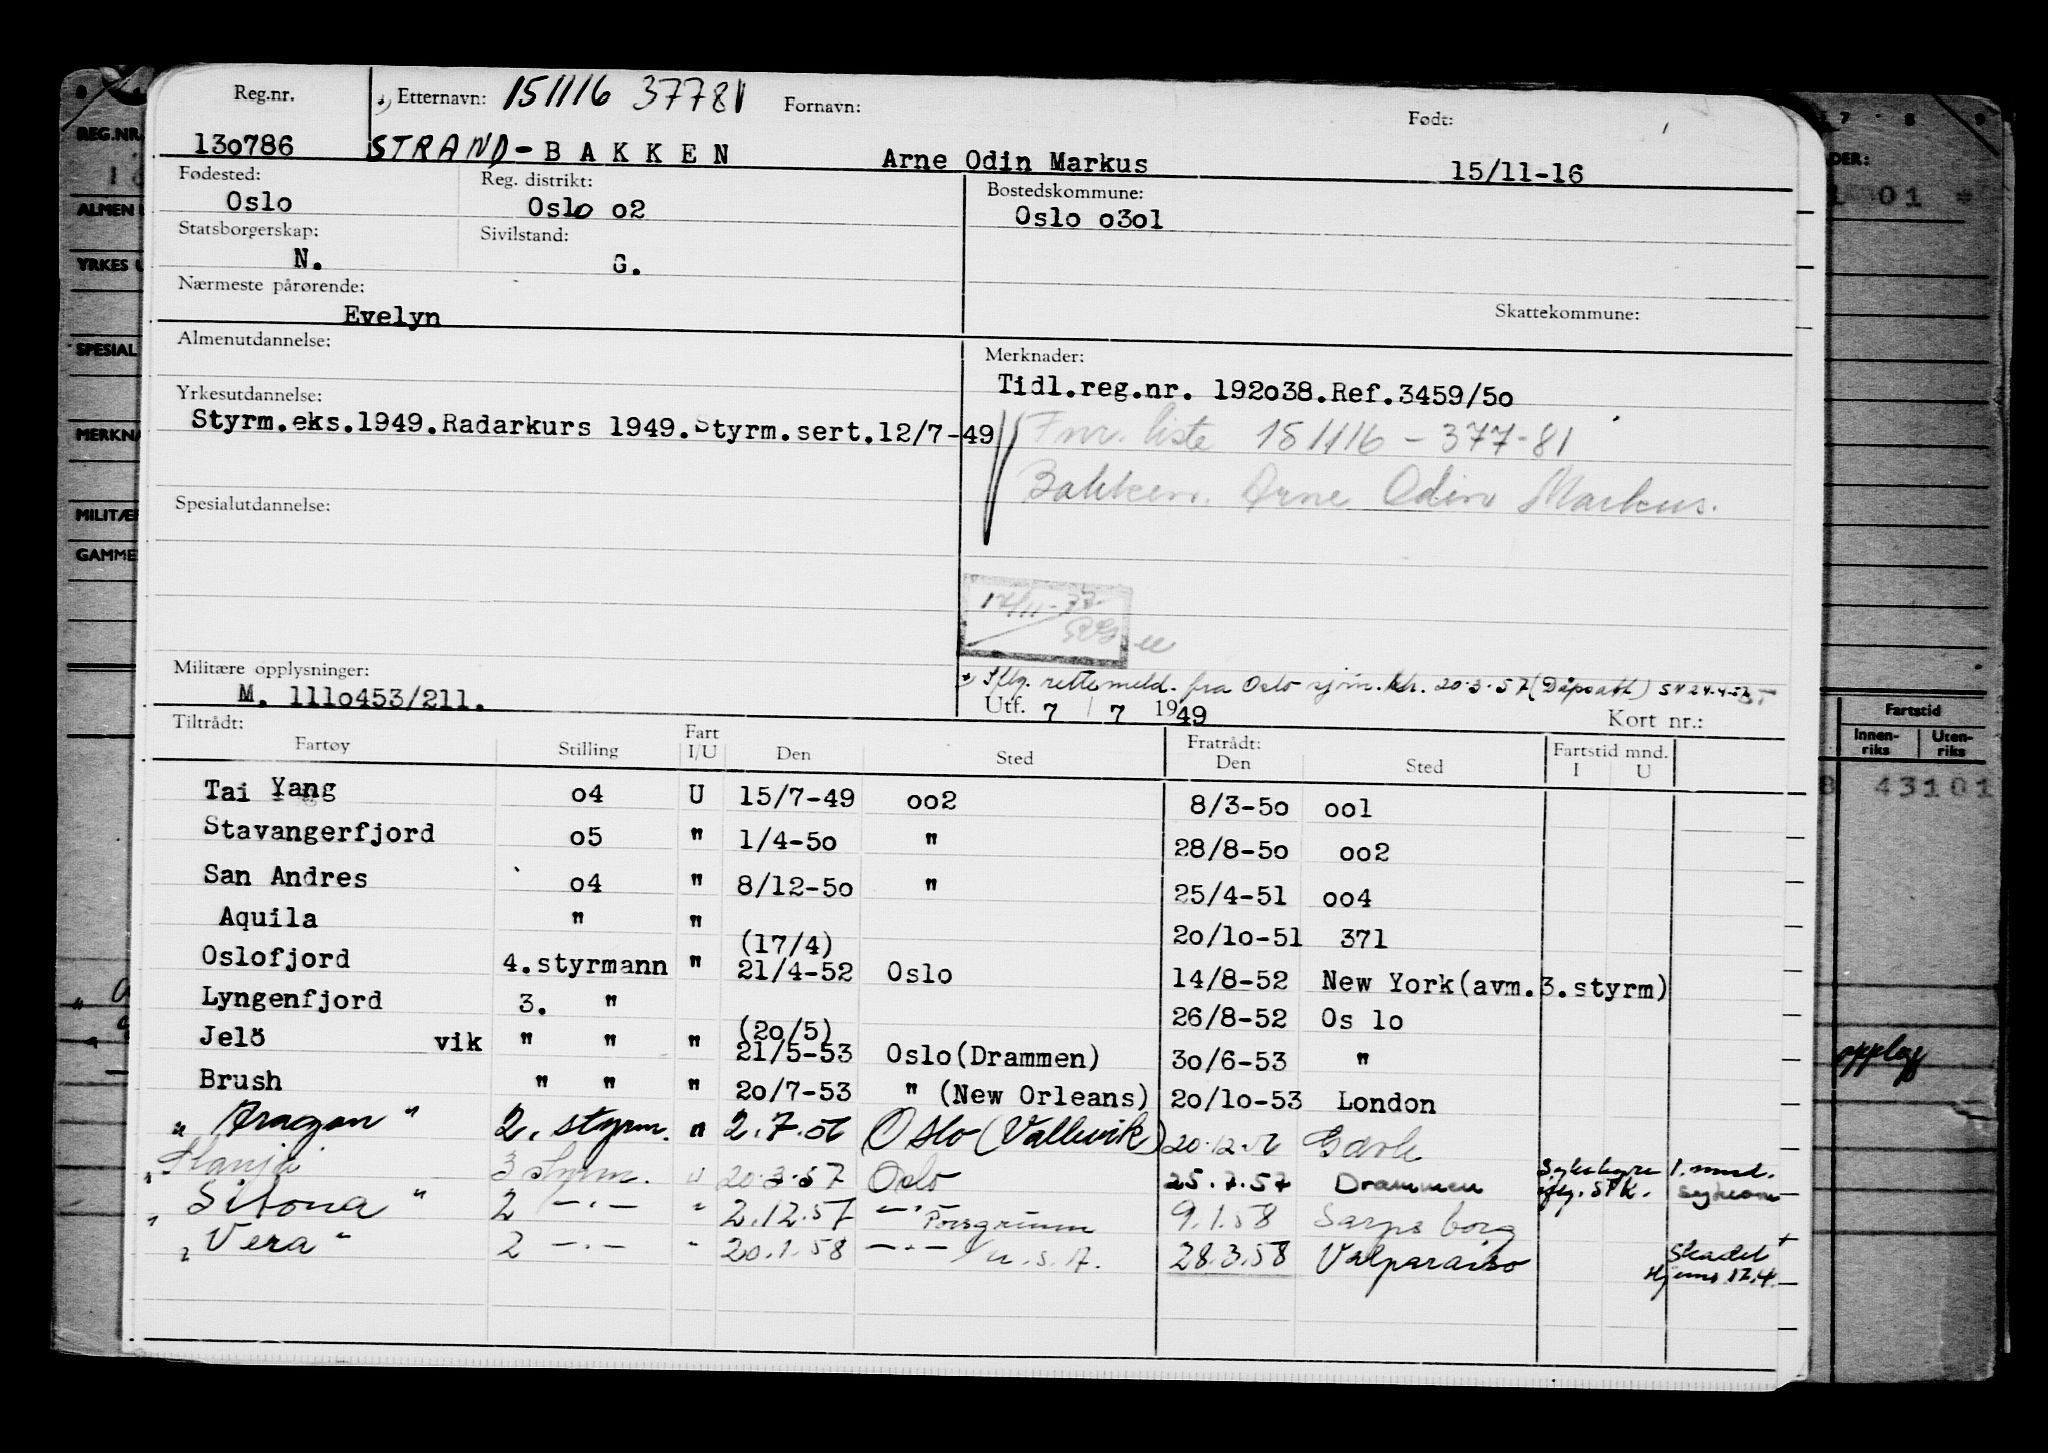 Reg.nr. Etternavn: 151116 37781 Fornavn: Født:
130786 STRAND-BAKKEN Arne Odin Markus 15/11-16
Fødested: Reg. distrikt: Bostedskommune:
Oslo Oslo o2 Oslo o3o1
Statsborgerskap: Sivilstand:
N. G.
Nærmeste pårørende: Skattekommune:
Evelyn
Almenutdannelse: Merknader:
Tidl.reg.nr. 192o38.Ref.3459/5o
Yrkesutdannelse:
Styrm.eks.1949.Radarkurs 1949.Styrm.sert.12/7-49
Fnr. liste 151116-377-81
Bakken. Arne Odin Markus.
Spesialutdannelse:
Militære opplysninger:
M. 111o453/211.
Iflg. rettemeld. fra Oslo sjm.ktr. 20.3.57 (Dåpsatt.)
Utf. 7 / 7 1949 Kort nr.:
Tiltrådt: Fart Fratrådt: Fartstid mnd.
Fartøy Stilling I/U Den Sted Den Sted I U
Tai Yang o4 U 15/7-49 oo2 8/3-5o oo1
Stavangerfjord o5 " 1/4-5o " 28/8-5o oo2
San Andres o4 " 8/12-5o " 25/4-51 oo4
Aquila " " 2o/1o-51 371
(17/4)
Oslofjord 4.styrmann " 21/4-52 Oslo 14/8-52 New York(avm.3.styrm)
Lyngenfjord 3. " 26/8-52 Os lo
(2o/5)
Jelö vik " " " 21/5-53 Oslo(Drammen) 3o/6-53 "
Brush " " " 2o/7-53 " (New Orleans) 2o/1o-53 London
" Aragon " 2. styrm. " 2.7.56 Oslo (Vallvik) 20.12.56 Gävle
3 styrm. " 20.3.57 Oslo 25.7.57 Drammen Sykehyre 1. mnd.
iflg. SPK.
Sitona " 2 -"- " 2.12.57 -"- Porsgrunn 9.1.58 Sarpsborg
" Vera " 2 -"- " 20.1.58 -"- / U.S.A. 28.3.58 Valparaiso Skadet
Hjems 17.4.
REG.NR.
ALMEN
YRKES
SPESIAL
MERKNA
MILITÆR
GAMME
7 8 9
DER:
1 01 *
Fartstid
Innen-riks Uten-riks
8 43101
opplagt